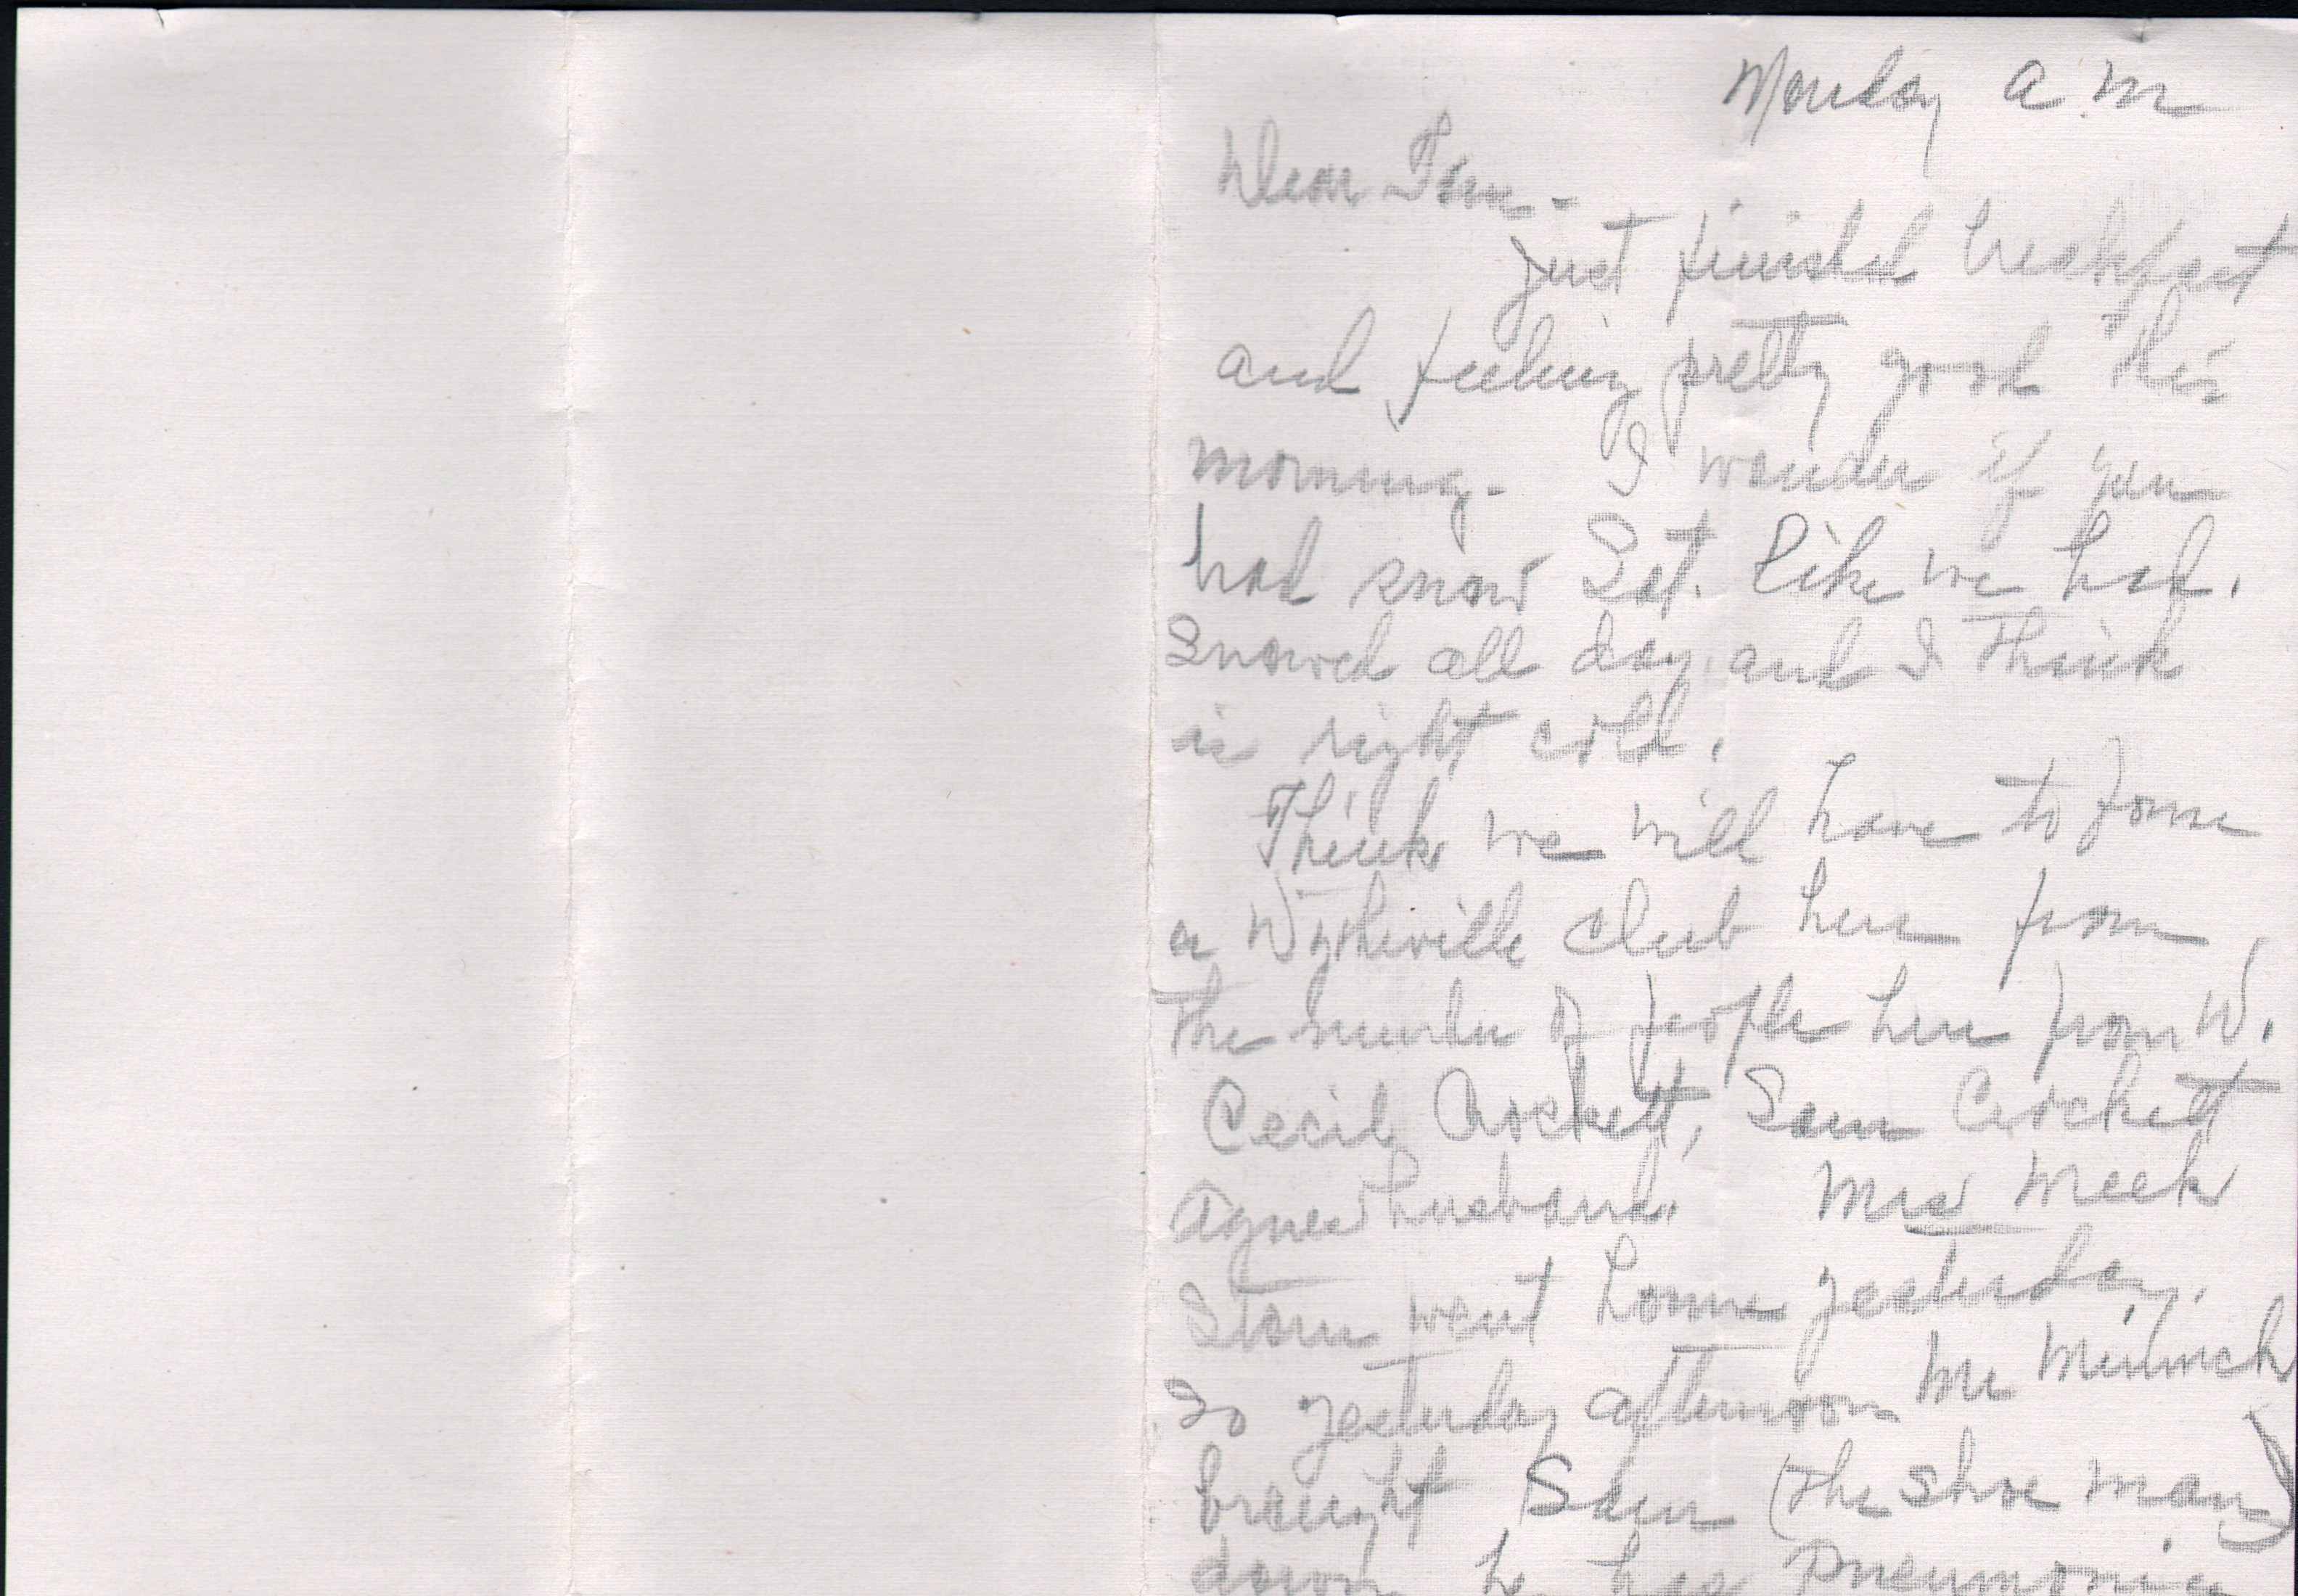 Monday a.m
Dear Tom -
Just finished breakfast
and feeling pretty good this
morning. I wonder if you
had snow Sat. like we had.
Snowed all day and I think
is right cold.
Think we will have to form
a Wytheville club here from
the number of people here from W.
Cecil Crockett, Sam Crockett
Agnes husband. Mrs Meek
Stone went home yesterday.
So yesterday afternoon Mr
brought Sam (the shoe man)
down he has pneumonia